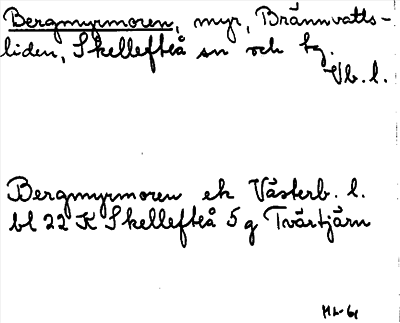 Bergmyrmoren, myr, Brännvatts-
liden, Skellefteå sn och tg.
Vb. l.
Bergmyrmoren ek Västerb. l.
bl 22 K Skellefteå 5 g Tvärtjärn